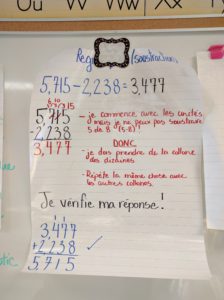 Ou W
(soustraction)
5,715-2,238=3,477
5,715
-2,238
3,477
- je commence avec les unités
mais je ne peux pas soustraire
5 de 8 (5-8)!
DONC
- je dois prendre de la colonne
des dizaines
- Répète la même chose avec
les autres colonnes.
Je vérifie ma réponse!
3,477
+2,238
5,715